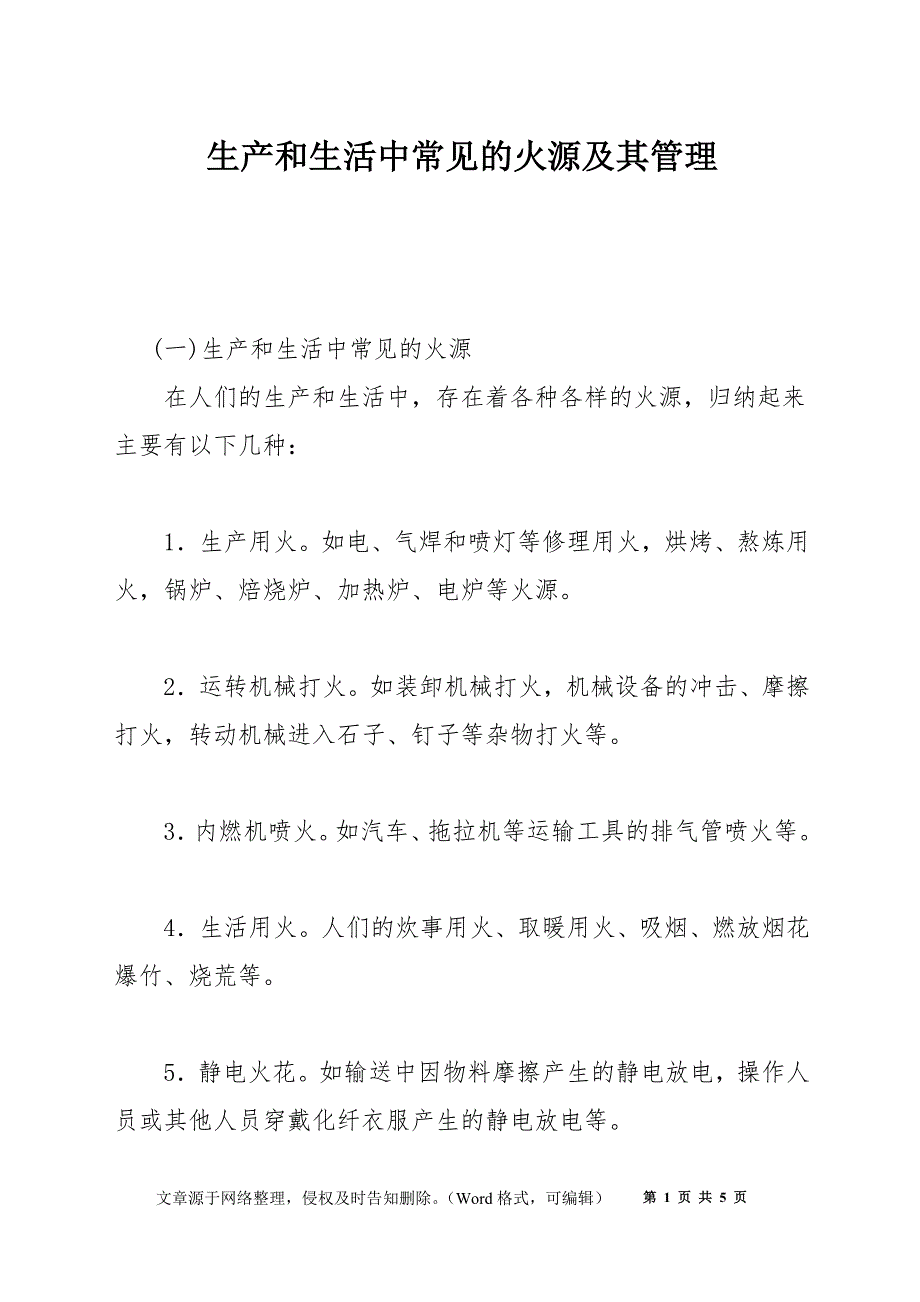 生产和生活中常见的火源及其管理
(一)生产和生活中常见的火源
在人们的生产和生活中，存在着各种各样的火源，归纳起来
主要有以下几种：
1．生产用火。如电、气焊和喷灯等修理用火，烘烤、熬炼用
火，锅炉、焙烧炉、加热炉、电炉等火源。
2．运转机械打火。如装卸机械打火，机械设备的冲击、摩擦
打火，转动机械进入石子、钉子等杂物打火等。
3．内燃机喷火。如汽车、拖拉机等运输工具的排气管喷火等。
4．生活用火。人们的炊事用火、取暖用火、吸烟、燃放烟花
爆竹、烧荒等。
5．静电火花。如输送中因物料摩擦产生的静电放电，操作人
员或其他人员穿戴化纤衣服产生的静电放电等。
文章源于网络整理，侵权及时告知删除。（Word 格式，可编辑） 第 1 页 共 5 页